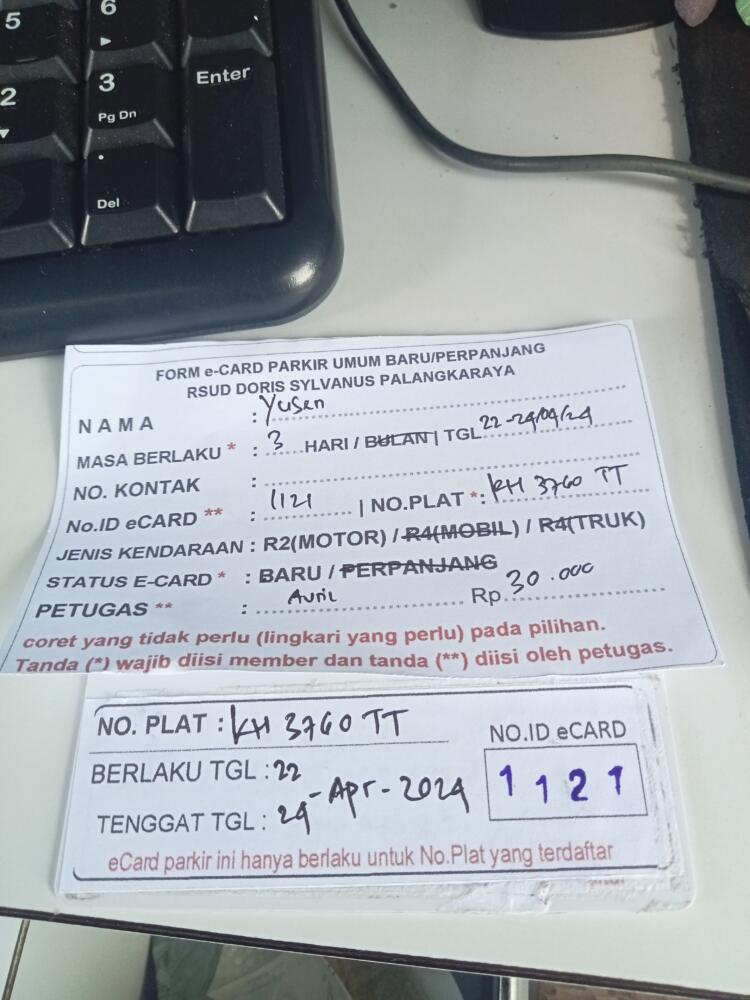 5
6
2
3
Pg Dn
Enter
.
Del
FORM e-CARD PARKIR UMUM BARU/PERPANJANG
RSUD DORIS SYLVANUS PALANGKARAYA
NAMA : Yusen
MASA BERLAKU * : 3 HARI / BULAN | TGL 22-24/04/24
NO. KONTAK :
No.ID eCARD ** : 1121 | NO.PLAT *: KH 3760 TT
JENIS KENDARAAN : R2(MOTOR) / R4(MOBIL) / R4(TRUK)
STATUS E-CARD * : BARU / PERPANJANG
PETUGAS ** : Avril Rp. 30.000
coret yang tidak perlu (lingkari yang perlu) pada pilihan.
Tanda (*) wajib diisi member dan tanda (**) diisi oleh petugas.
NO. PLAT : KH 3760 TT
NO.ID eCARD
1121
BERLAKU TGL : 22
TENGGAT TGL : 24 - Apr - 2024
eCard parkir ini hanya berlaku untuk No.Plat yang terdaftar